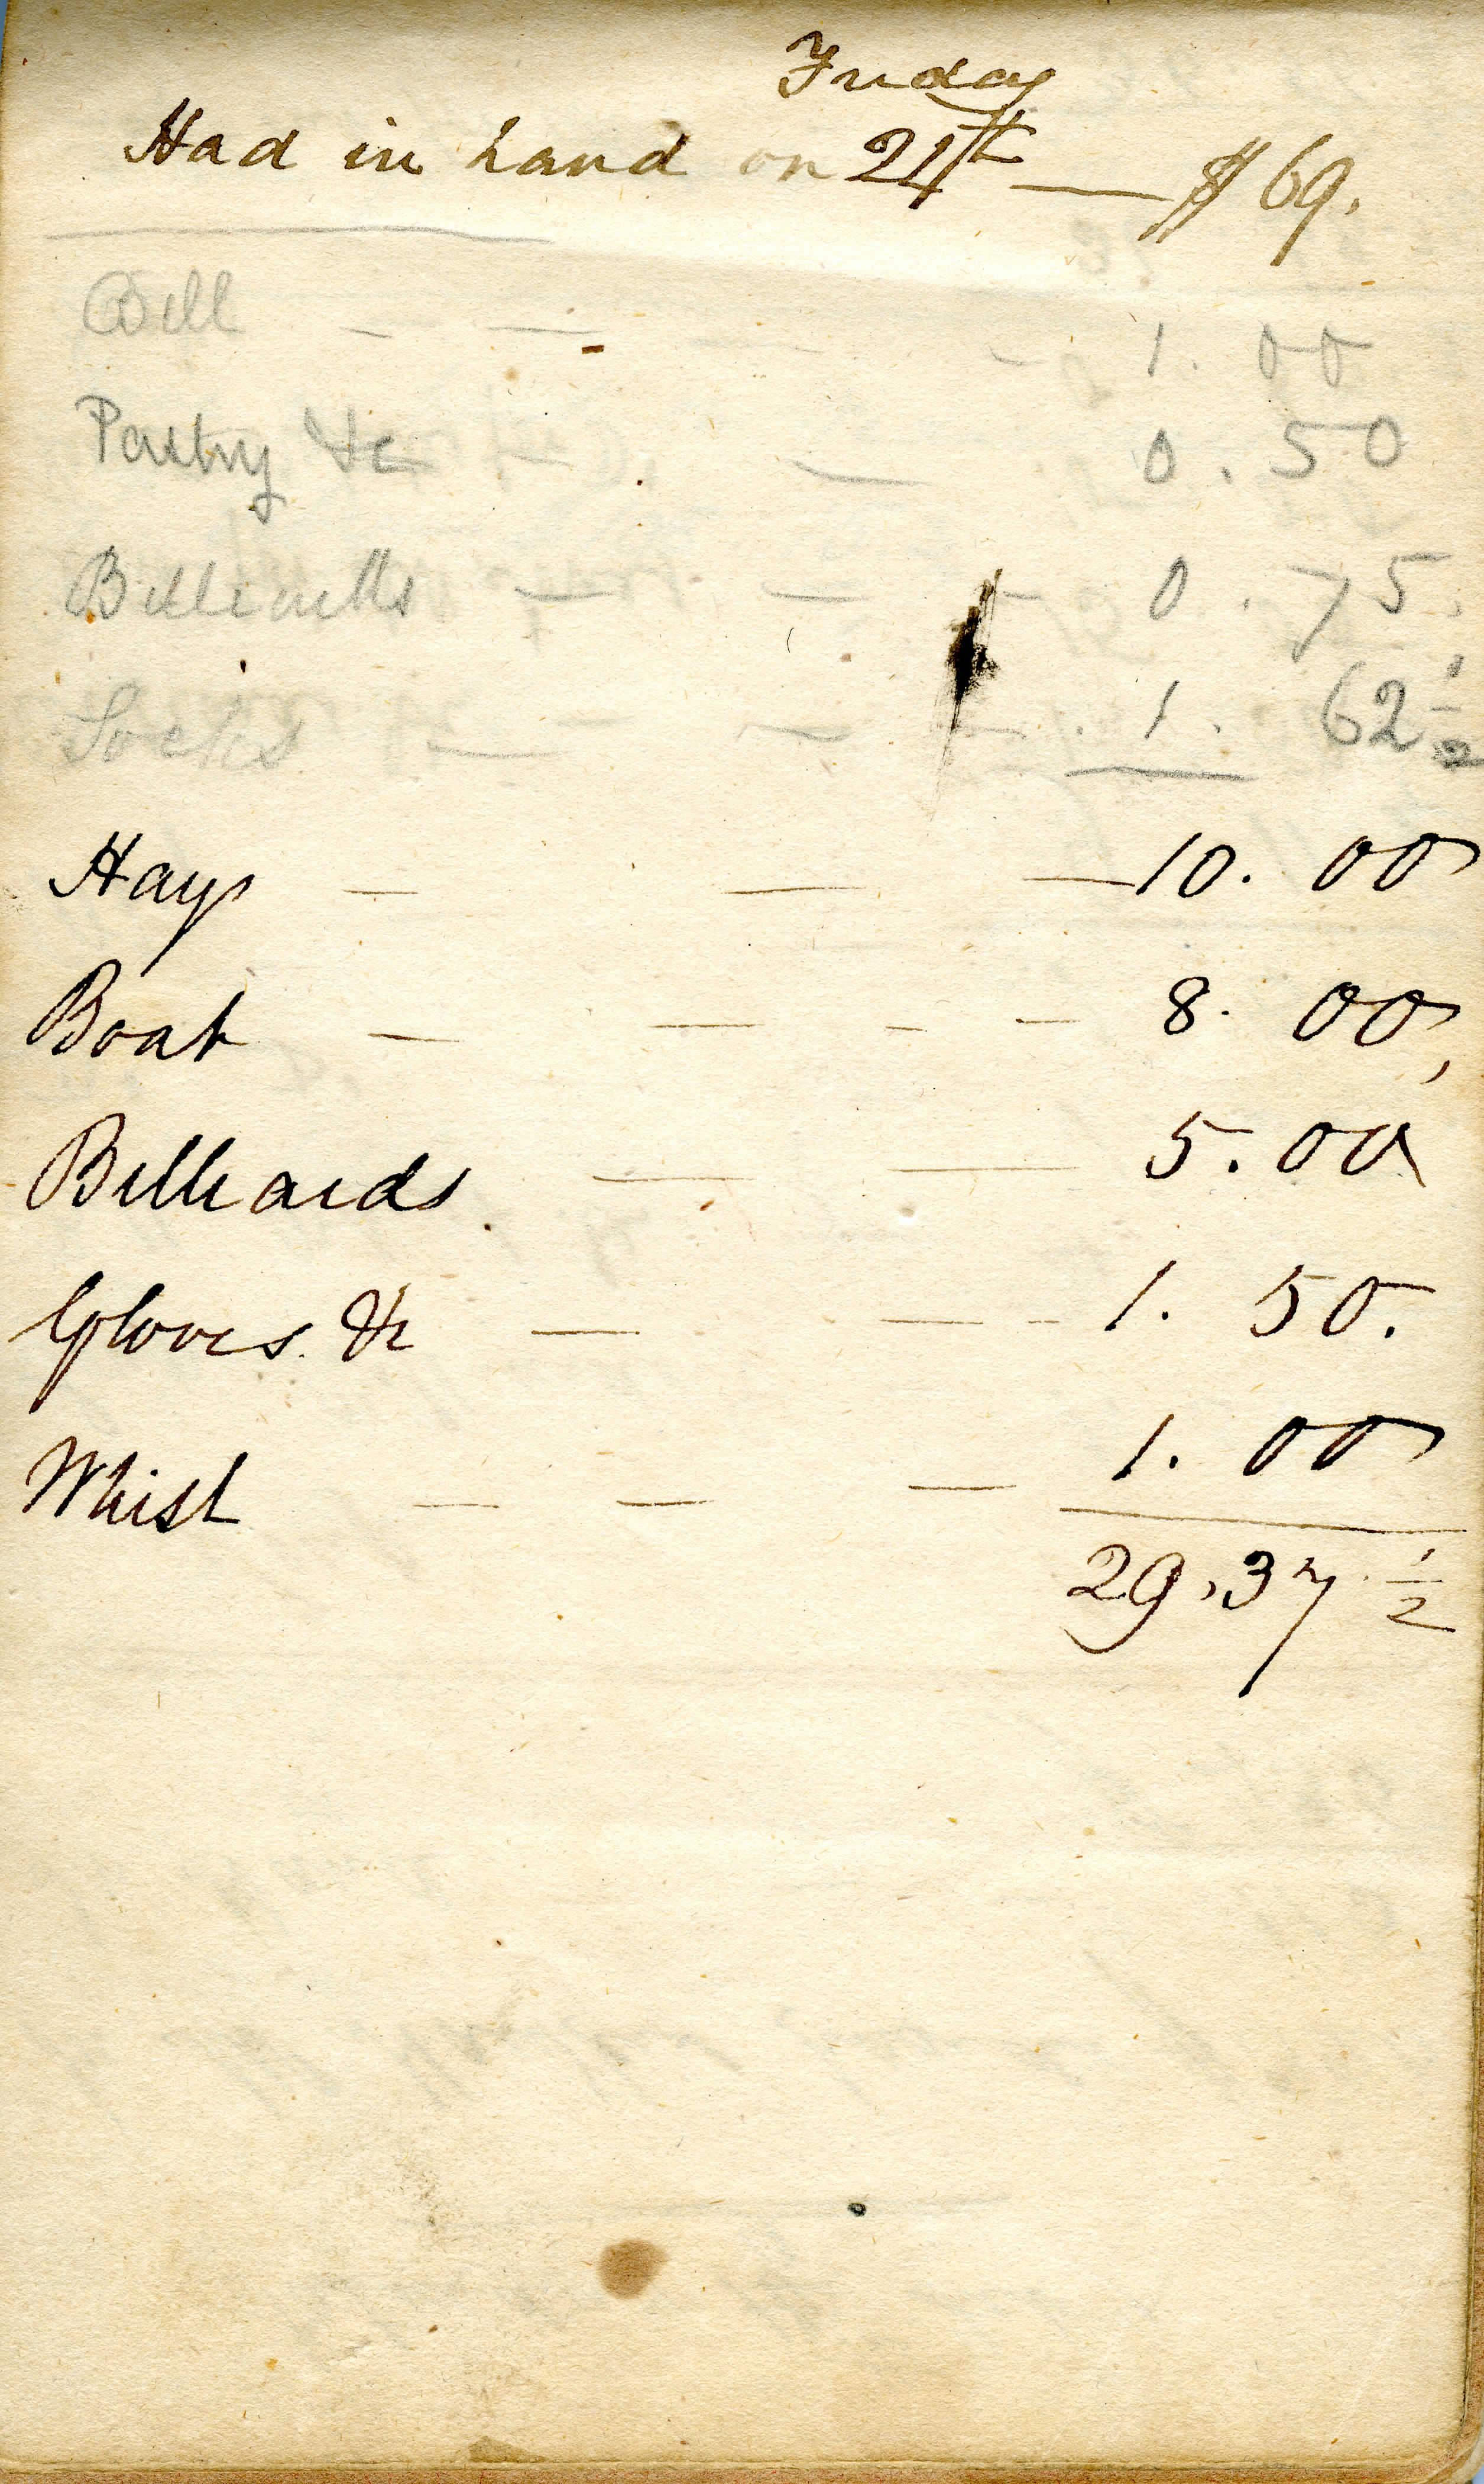 Friday
Had in hand on 24th — $69.
Bill — — — — 1.00
Pastry &c — — 0.50
Billiards — — — 0.75.
Socks — — — — 1. 62 1/2
Hays — — — 10.00
Boat — — — — 8.00,
Billiards. — — 5.00
Gloves. &c — — — 1. 50.
Whist — — — 1.00
29,37 1/2